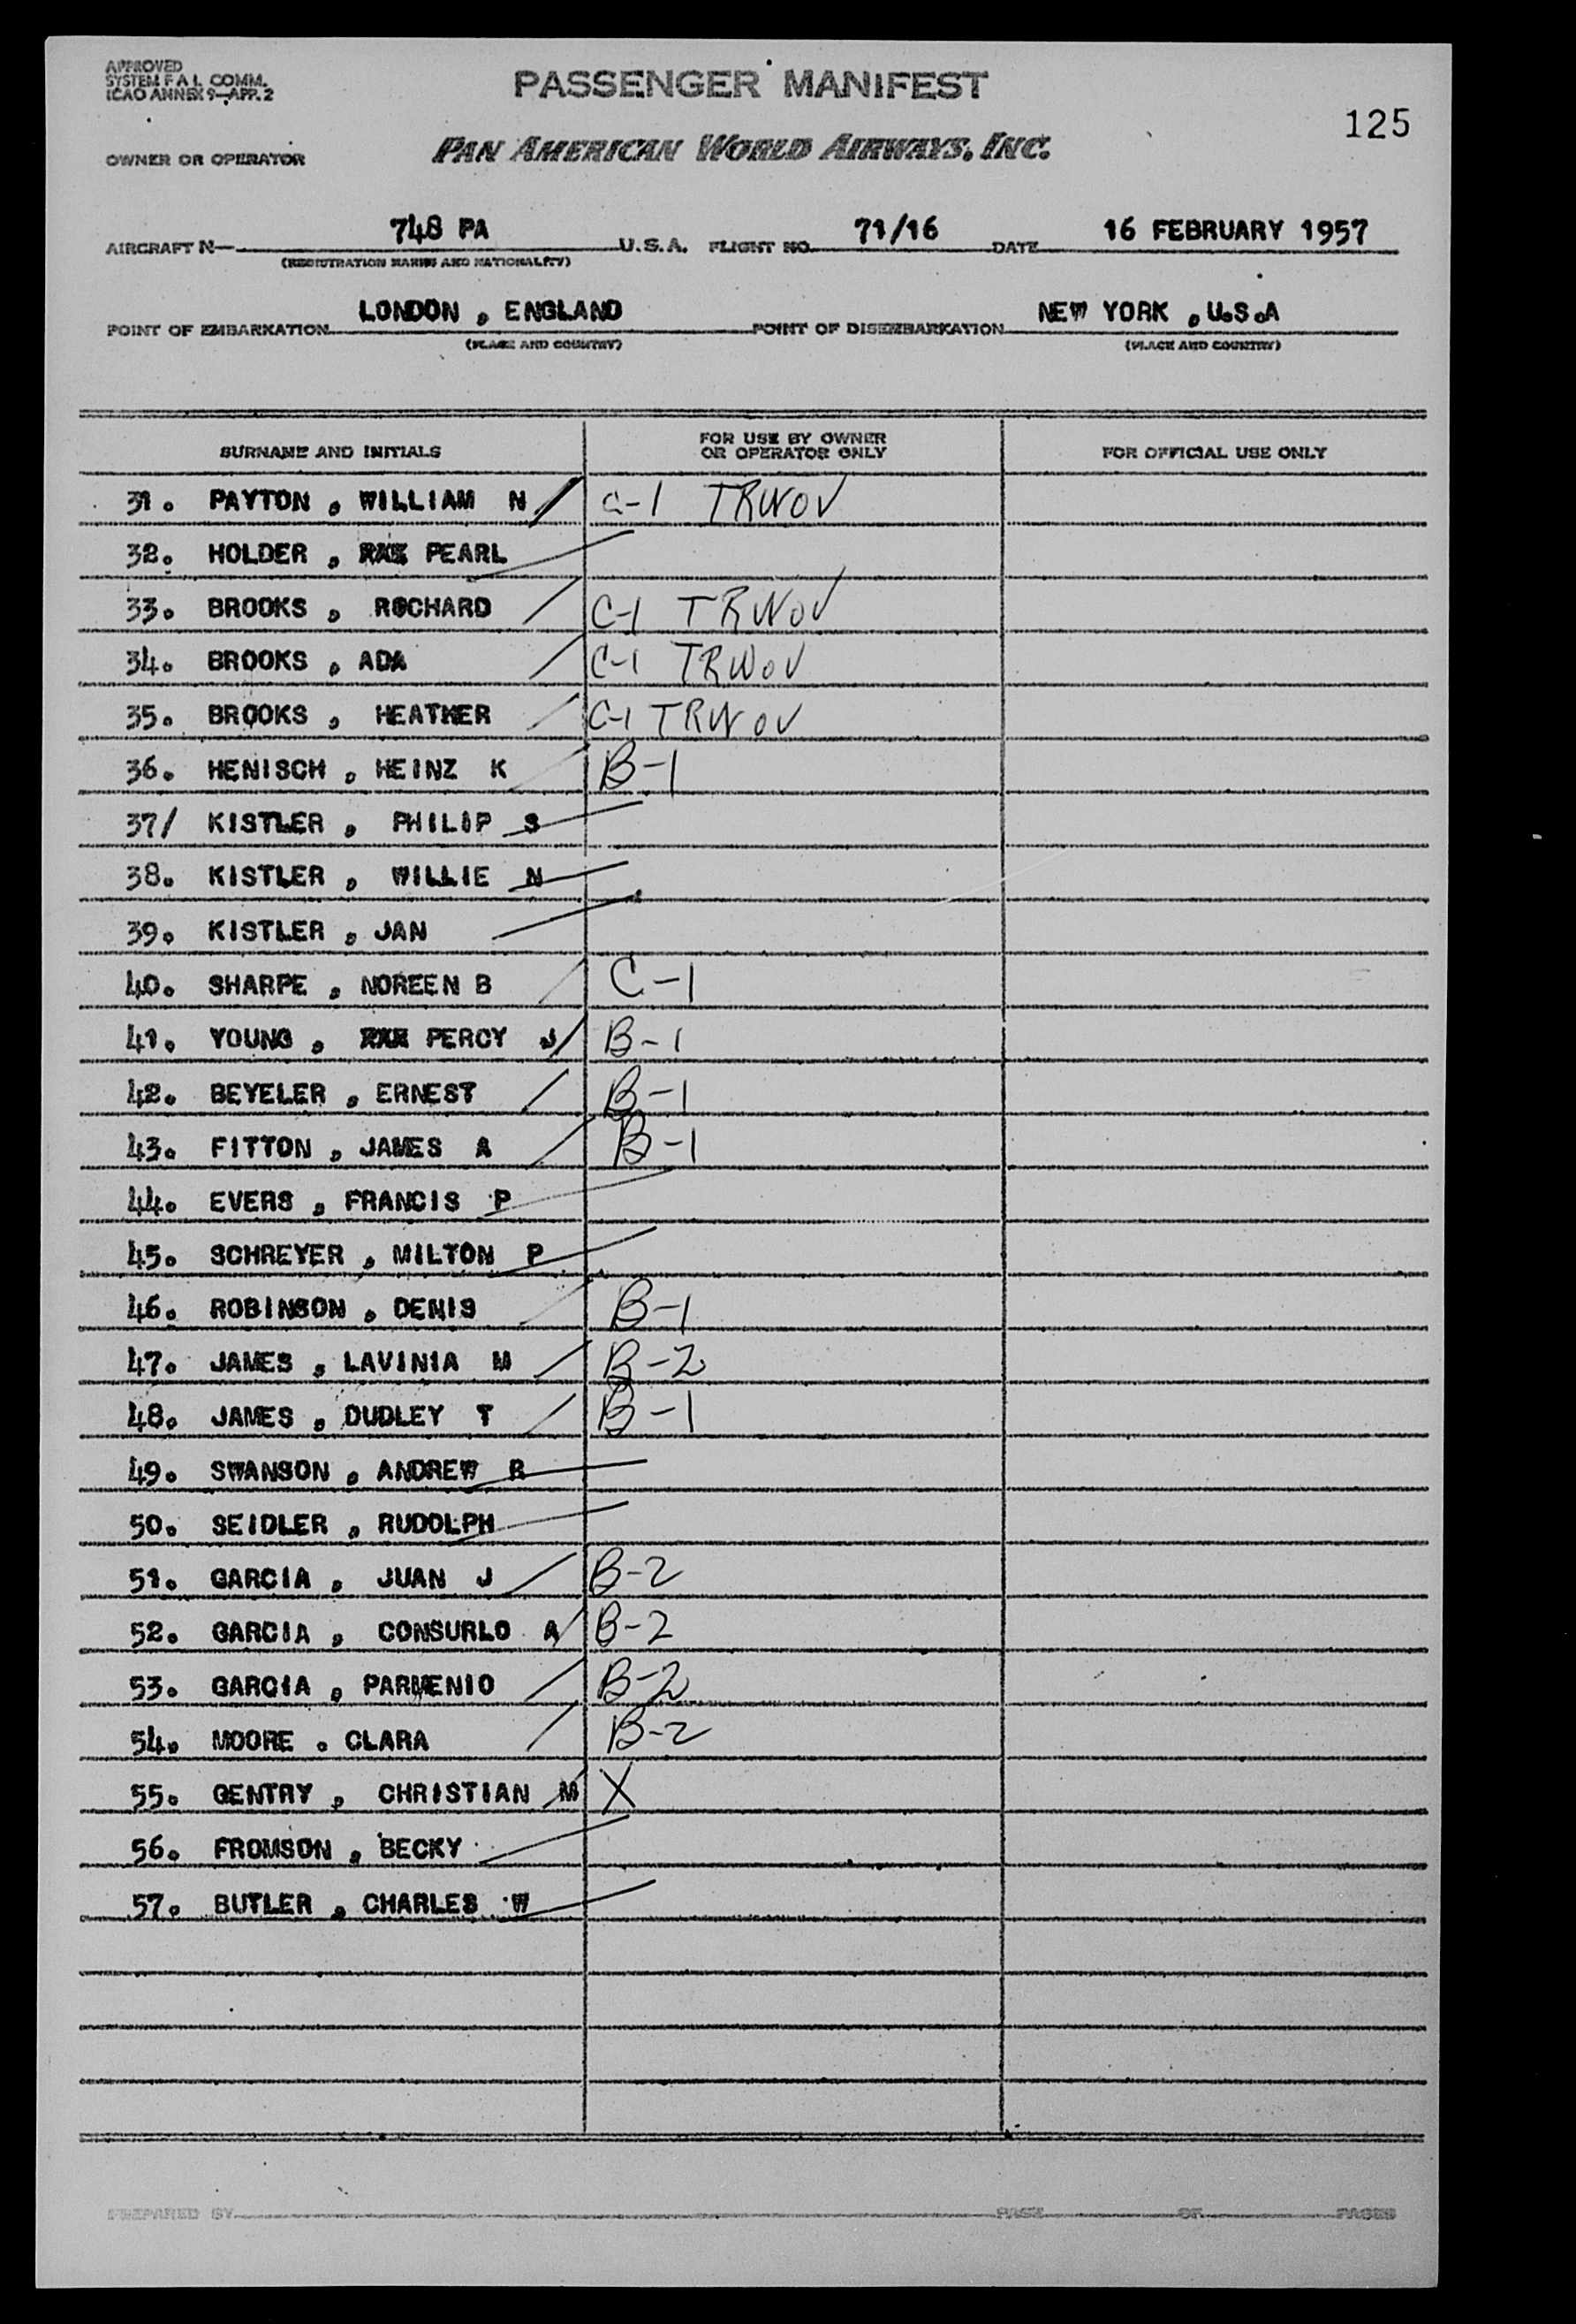 APPROVED
SYSTEM F A L COMM.
ICAO ANNEX 9—APP. 2
PASSENGER MANIFEST
125
OWNER OR OPERATOR PAN AMERICAN WORLD AIRWAYS, INC.
AIRCRAFT N— 748 PA U.S.A. FLIGHT NO. 71/16 DATE 16 FEBRUARY 1957
(REGISTRATION MARKS AND NATIONALITY)
POINT OF EMBARKATION LONDON , ENGLAND POINT OF DISEMBARKATION NEW YORK , U.S.A
(PLACE AND COUNTRY) (PLACE AND COUNTRY)
SURNAME AND INITIALS FOR USE BY OWNER OR OPERATOR ONLY FOR OFFICIAL USE ONLY
31. PAYTON , WILLIAM N / C-1 TRWOV
32. HOLDER , PEARL
33. BROOKS , ROCHARD / C-1 TRWOV
34. BROOKS , ADA / C-1 TRWOV
35. BROOKS , HEATHER / C-1 TRWOV
36. HENISCH , HEINZ K / B-1
37/ KISTLER , PHILIP S
38. KISTLER , WILLIE N
39. KISTLER , JAN
40. SHARPE , NOREEN B / C-1
41. YOUNG , PERCY J / B-1
42. BEYELER , ERNEST / B-1
43. FITTON , JAMES A / B-1
44. EVERS , FRANCIS P
45. SCHREYER , MILTON P
46. ROBINSON , DENIS / B-1
47. JAMES , LAVINIA M / B-2
48. JAMES , DUDLEY T / B-1
49. SWANSON , ANDREW R
50. SEIDLER , RUDOLPH
51. GARCIA , JUAN J / B-2
52. GARCIA , CONSURLO A / B-2
53. GARCIA , PARMENIO / B-2
54. MOORE . CLARA / B-2
55. GENTRY , CHRISTIAN M / X
56. FROMSON , BECKY
57. BUTLER , CHARLES W
PREPARED BY PAGE OF PAGES